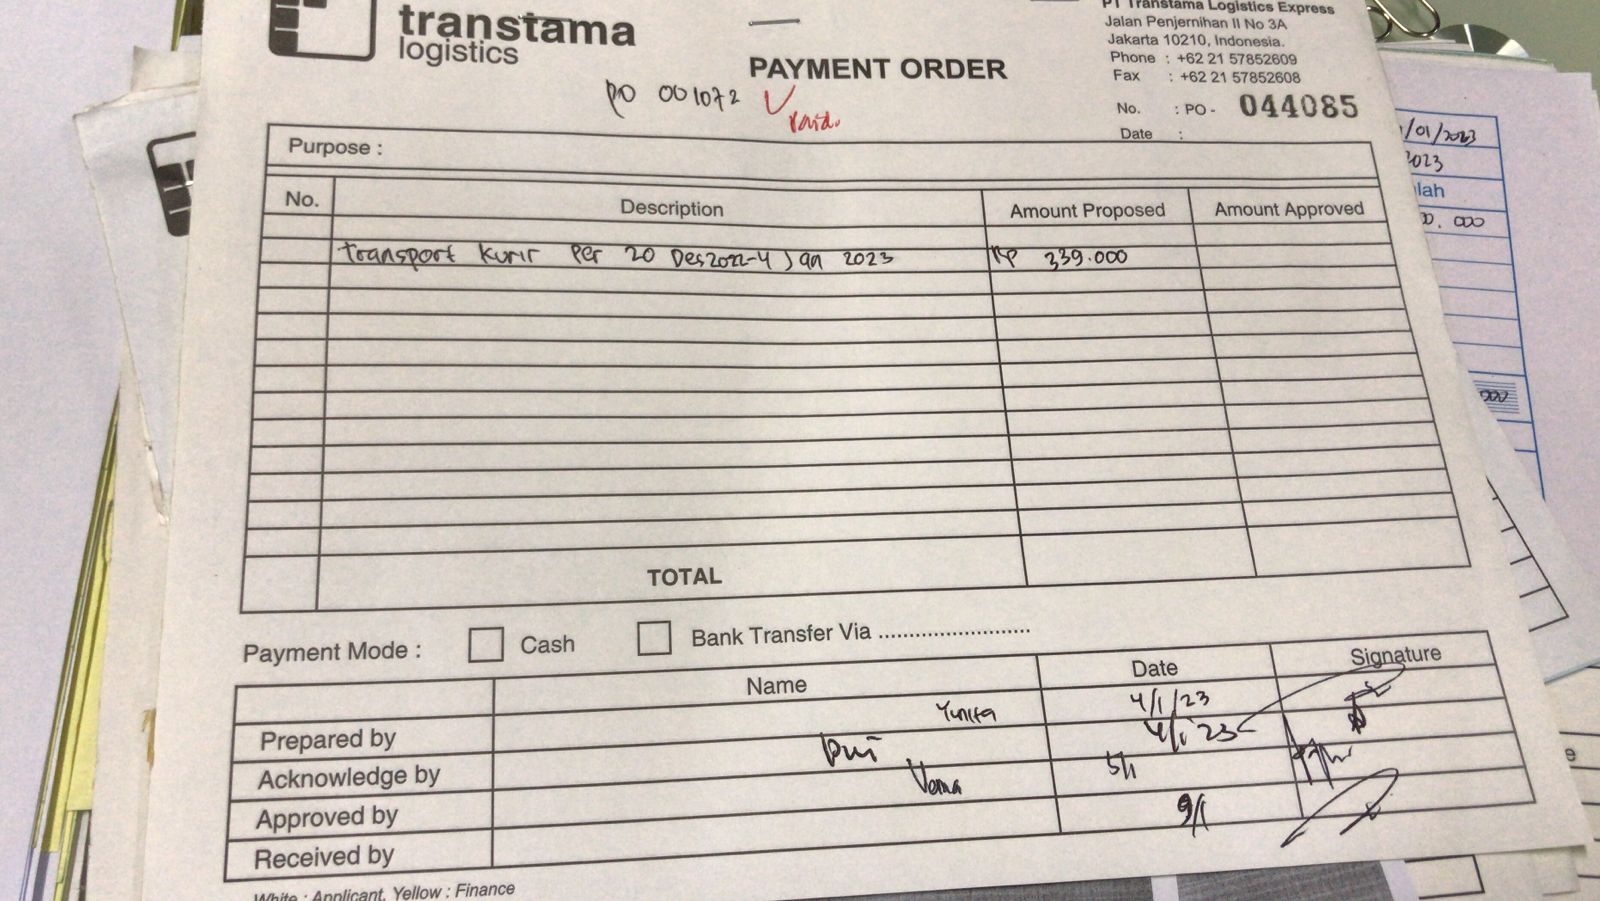 transtama
logistics
PAYMENT ORDER
PT Transtama Logistics Express
Jalan Penjernihan II No 3A
Jakarta 10210, Indonesia.
Phone : +62 21 57852609
Fax : +62 21 57852608
No. : PO - 044085
Date :
PO 001072
Paid.
Purpose :
No. Description Amount Proposed Amount Approved
Transport Kurir Per 20 Des2022-4 Jan 2023 Rp 339.000
TOTAL
Payment Mode : Cash Bank Transfer Via ..........................
Name Date Signature
Prepared by Yunita 4/1/23
Acknowledge by Dwi 4/1 23
Approved by Vema 5/1
Received by 9/1
White : Applicant, Yellow : Finance
/01/2023
2023
lah
00.000
000